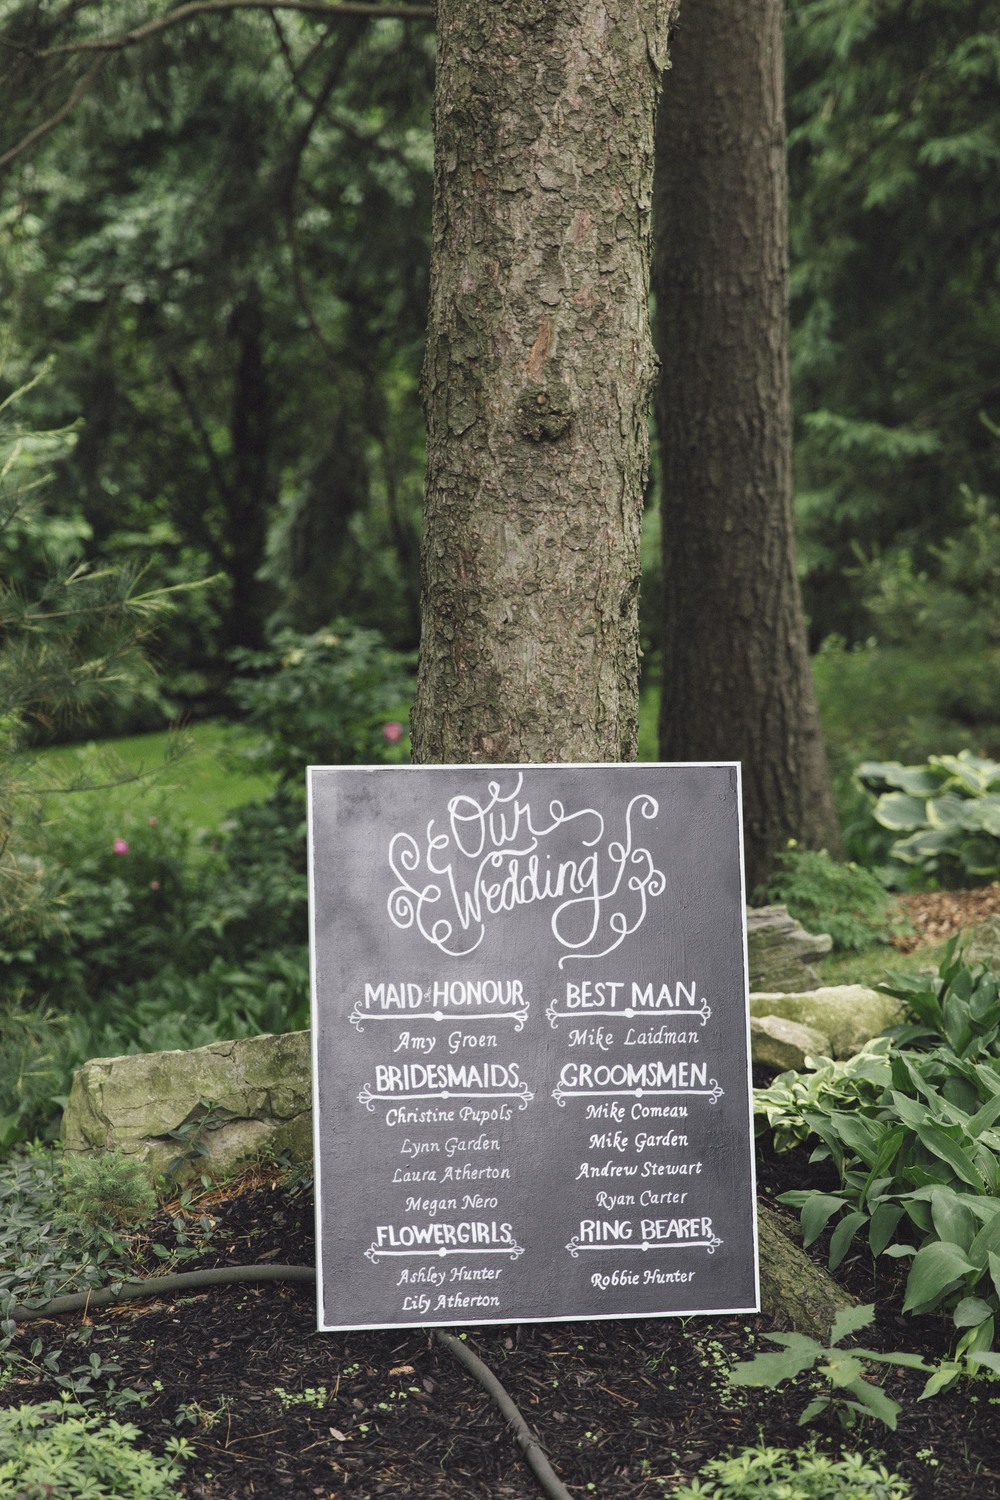 Our
Wedding
MAID of HONOUR
Amy Groen
BRIDESMAIDS
Christine Pupols
Lynn Garden
Laura Atherton
Megan Nero
FLOWERGIRLS
Ashley Hunter
Lily Atherton
BEST MAN
Mike Laidman
GROOMSMEN
Mike Comeau
Mike Garden
Andrew Stewart
Ryan Carter
RING BEARER
Robbie Hunter